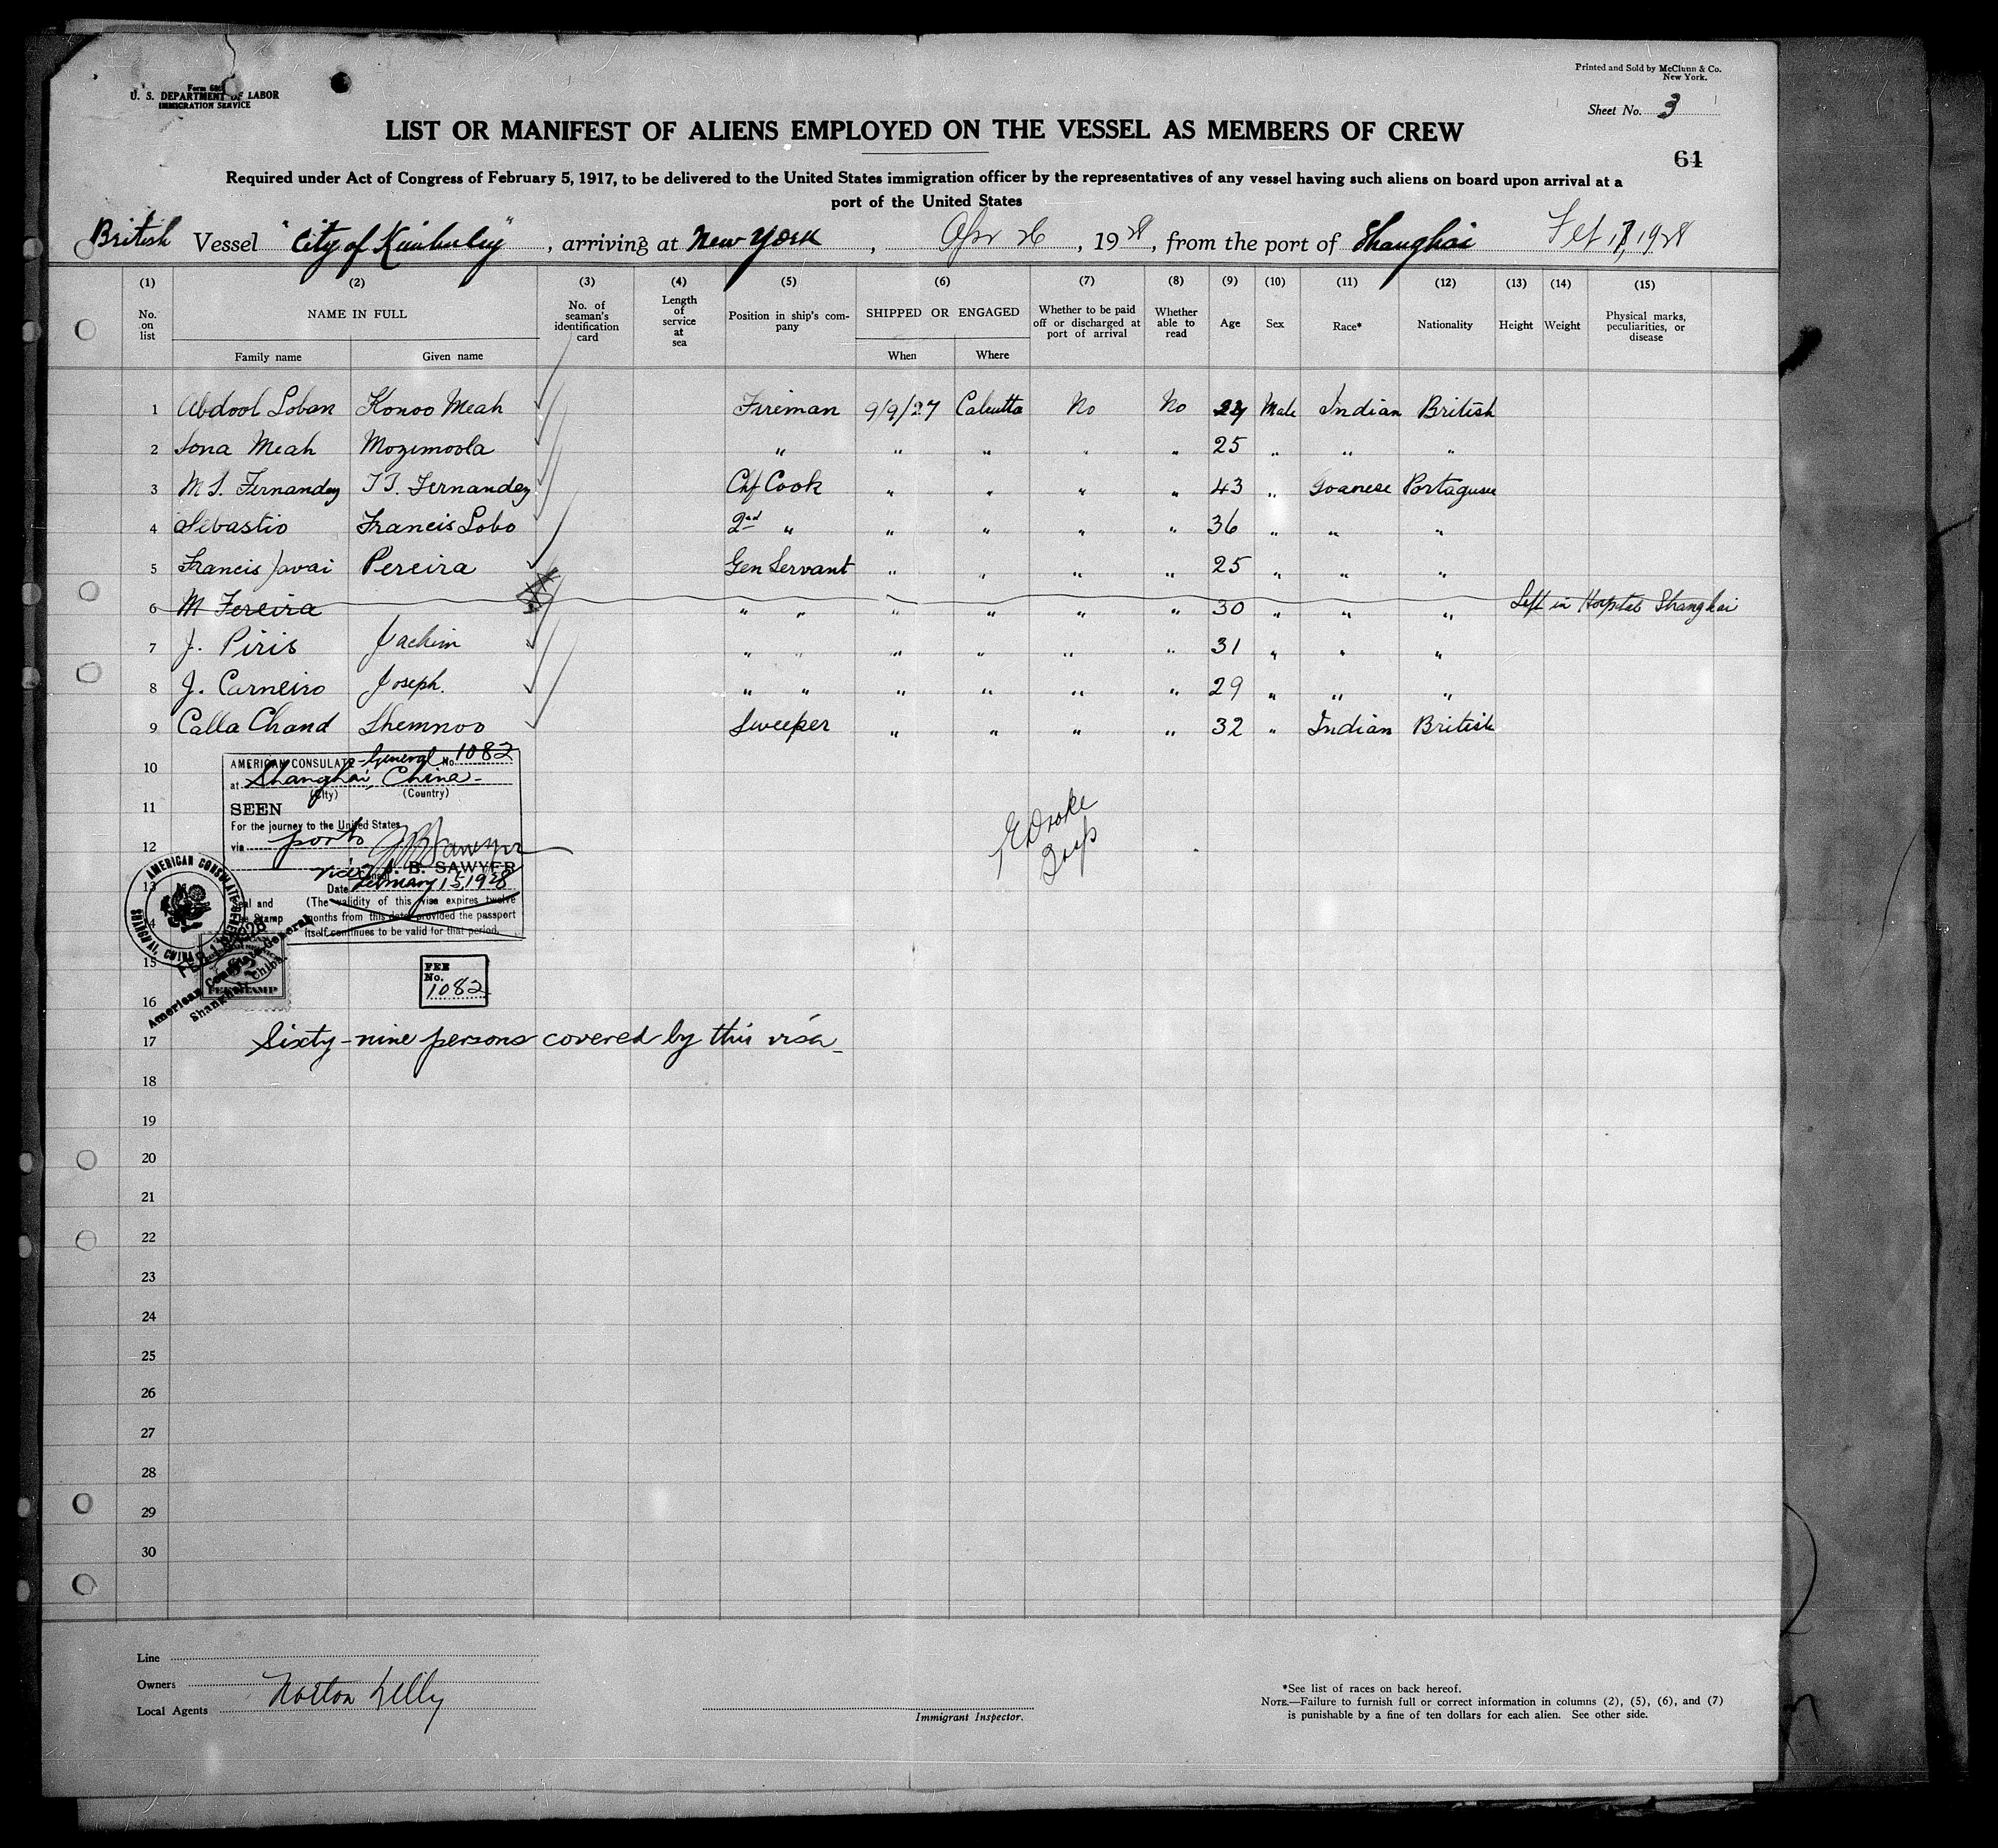 Printed and Sold by McClunn & Co.
New York.
U. S. DEPARTMENT OF LABOR
IMMIGRATION SERVICE
Sheet No. 3
LIST OR MANIFEST OF ALIENS EMPLOYED ON THE VESSEL AS MEMBERS OF CREW
61
Required under Act of Congress of February 5, 1917, to be delivered to the United States immigration officer by the representatives of any vessel having such aliens on board upon arrival at a
port of the United States
British Vessel "City of Kimberley", arriving at New York, Apr 26, 1928, from the port of Shanghai Feb 17, 1928
(1) (2) (3) (4) (5) (6) (7) (8) (9) (10) (11) (12) (13) (14) (15)
No. on list NAME IN FULL No. of seaman's identification card Length of service at sea Position in ship's company SHIPPED OR ENGAGED Whether to be paid off or discharged at port of arrival Whether able to read Age Sex Race* Nationality Height Weight Physical marks, peculiarities, or disease
Family name Given name When Where
1 Abdool Loban Konoo Meah Fireman 9/9/27 Calcutta No No Male Indian British
2 Sona Meah Mozimoola " " " " " 25 " " "
3 M S. Fernandez T T. Fernandez Chf Cook " " " " 43 " Goanese Portaguese
4 Sebastio Francis Lobo 2nd " " " " " 36 " " "
5 Francis Javai Pereira Gen Servant " " " " 25 " " "
6 M Fereira " " " " " " 30 " " " Left in Hospital Shanghai
7 J. Piris Jachim " " " " " " 31 " " "
8 J. Carneiro Joseph. " " " " " " 29 " " "
9 Calla Chand Shemnoo Sweeper " " " " 32 " Indian British
10
AMERICAN CONSULATE-General No. 1082
at Shanghai, China-
(City) (Country)
11
SEEN
For the journey to the United States
12
via ports
Vice J. B. SAWYER
13
Date February 15, 1928
(The validity of this visa expires twelve
months from this date provided the passport
itself continues to be valid for that period.
AMERICAN CONSULATE GENERAL
SHANGHAI, CHINA
American Consulate General
Shanghai, China.
15
FEE
No.
1082
16
17
Sixty-nine persons covered by this visa-
18
19
20
21
22
23
24
25
26
27
28
29
30
Line
Owners
Local Agents Norton Lilly
Immigrant Inspector.
*See list of races on back hereof.
NOTE.—Failure to furnish full or correct information in columns (2), (5), (6), and (7)
is punishable by a fine of ten dollars for each alien. See other side.